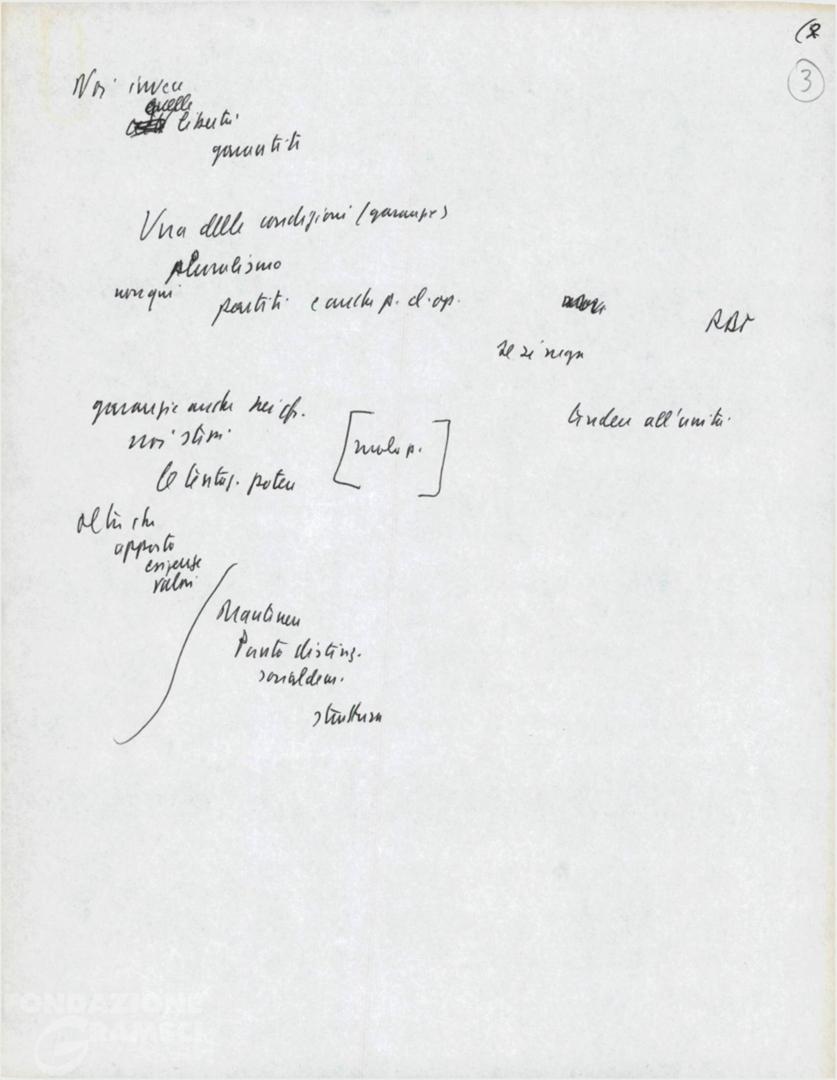 (2
3
Noi invece
quelle
libertà
garantiti
Una delle condizioni (garanzie)
pluralismo
non qui
partiti e anche p. d. op.
RDT
se si nega
garanzie anche nei cf.
tendere all'unità
noi stessi
[ruolo p.]
le tentaz. potere
oltre che
apporto
esigenze
valori
Mantenere
Punto disting.
socialdem.
struttura
FONDAZIONE
GRAMSCI